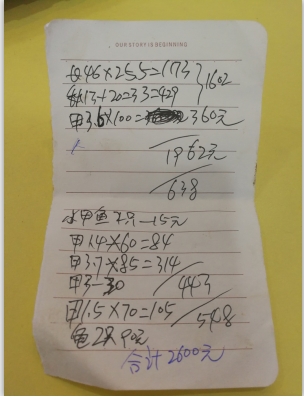 OUR STORY IS BEGINNING
46×25.5=1173
13+20=33=429 1602
甲3.6×100=360元
1962元
638
水甲鱼 只-15元
甲1.4×60=84
甲3.7×85=314
甲3-30 443
甲1.5×70=105 548
龟2只90元
合计2600元